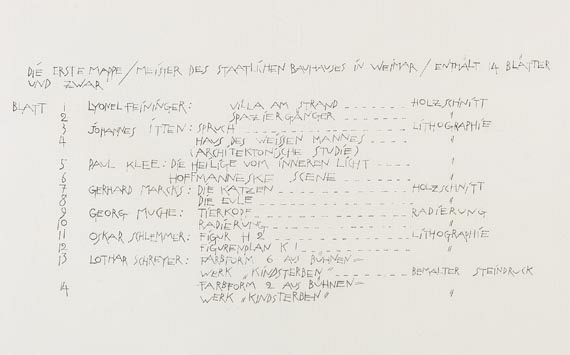 DIE ERSTE MAPPE / MEISTER DES STAATLICHEN BAUHAUSES IN WEIMAR / ENTHÄLT 14 BLÄTTER
UND ZWAR
BLATT 1 LYONEL FEININGER: VILLA AM STRAND ------- HOLZSCHNITT
2 SPAZIERGÄNGER ------- "
3 JOHANNES ITTEN: SPRUCH ------- LITHOGRAPHIE
4 HAUS DES WEISSEN MANNES ------- "
(ARCHITEKTONISCHE STUDIE)
5 PAUL KLEE: DIE HEILIGE VOM INNEREN LICHT ---- "
6 HOFFMANNESKE SCENE ------- "
7 GERHARD MARCKS: DIE KATZEN ------- HOLZSCHNITT
8 DIE EULE ------- "
9 GEORG MUCHE: TIERKOPF ------- RADIERUNG
10 RADIERUNG ------- "
11 OSKAR SCHLEMMER: FIGUR H 2 ------- LITHOGRAPHIE
12 FIGURENPLAN K 1 ------- "
13 LOTHAR SCHREYER: FARBFORM 6 AUS BÜHNEN=
WERK „KINDSTERBEN" ------- BEMALTER STEINDRUCK
14 FARBFORM 2 AUS BÜHNEN=
WERK „KINDSTERBEN" "